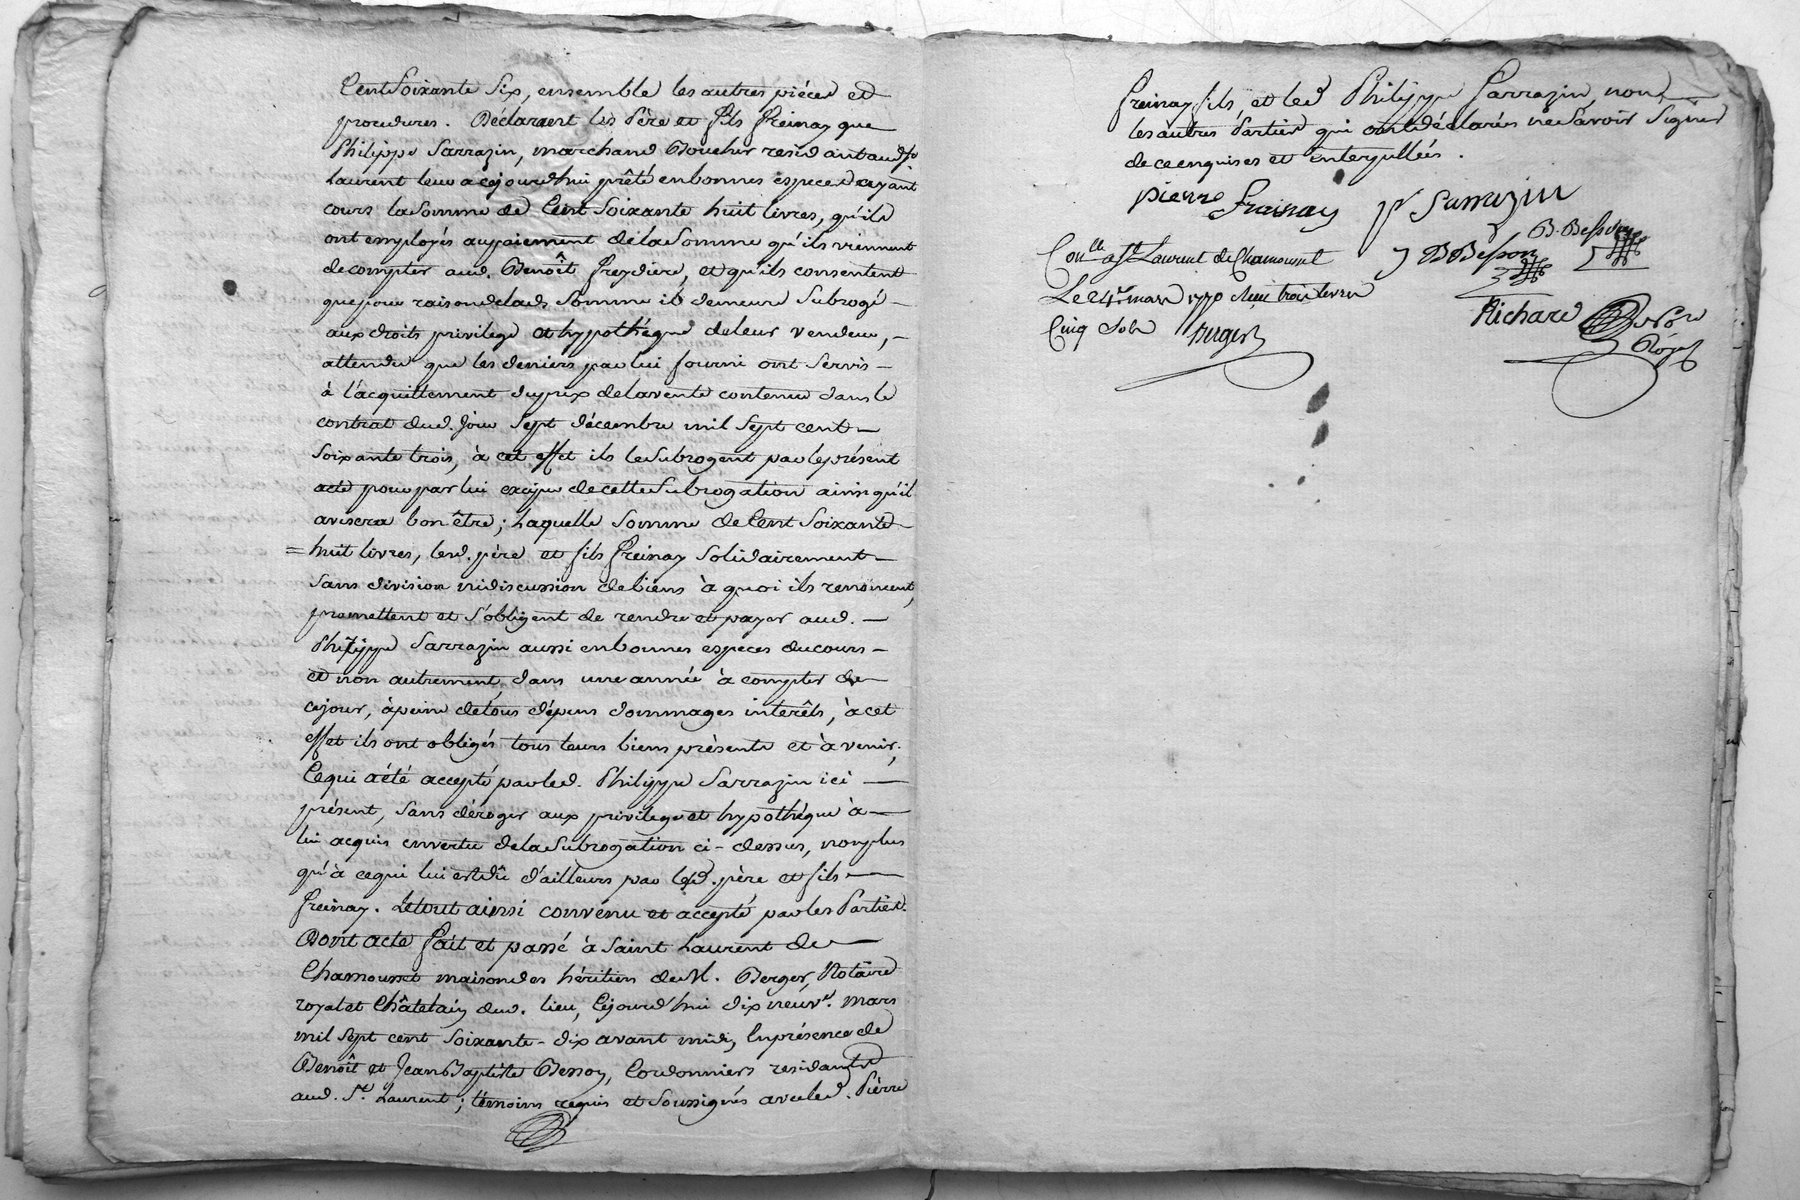 Cent Soixante Six, ensemble les autres pièces et
procedures. Déclarent les Père et fils freinay que
Philippe Sarrazin, marchand Boucher resid. audit St.
Laurent leur a cejourd'hui prêté en bonnes especes ayant
cours la Somme de Cent Soixante huit livres, qu'ils
ont employés au paiement de la Somme qu'ils viennent
de compter aud. Benoît freydière, et qu'ils consentent
que pour raison de lad. Somme il demeure Subrogé –
aux droits privilege et hypothéque de leur vendeur, –
attendu que les deniers par lui fourni ont Servis –
à l'acquittement du prix de la vente contenue dans le
contrat dud. jour Sept décembre mil Sept cent –
Soixante trois, à cet effet ils le Subrogent par le présent
acte pour par lui exciper de cette Subrogation ainsi qu'il
avisera bon être; Laquelle Somme de Cent Soixante –
= huit livres, lesd. père et fils freinay Solidairement –
Sans division ni discussion de biens à quoi ils renoncent,
promettent et S'obligent de rendre et payer aud. –
Philippe Sarrazin aussi en bonnes especes du cours –
et non autrement dans une année à compter de
cejour, à peine de tous dépens dommages interêts, à cet
effet ils ont obligés tous leurs biens présents et à venir;
Ce qui a été accepté par led. Philippe Sarrazin ici –
présent, Sans déroger aux privilege et hypothéque à –
lui acquis en vertu de la Subrogation ci-dessus, non plus
qu'à ce qui lui est dû d'ailleurs par lesd. père et fils –
freinay. Le tout ainsi convenu et accepté par les Parties.
Dont acte fait et passé à Saint Laurent de –
Chamousset maison des héritiers de M. Berger, Notaire
royal et Châtelain dud. lieu, Cejourd'hui dix neuve. mars
mil Sept cent Soixante-dix avant midi, En présence de
Benoît et Jean Baptiste Besson, Cordonniers residants
aud. St. Laurent; témoins requis et Soussignés avec led. Pierre
freinay fils, et led Philippe Sarrazin, non
les autres Parties qui ont déclarés ne Savoir Signer
de ce enquises et interpellées.
pierre freinay p Sarrazin
B. Besson
J B Besson
Conllé a St Laurent de Chamousset
Le 24e mars 1770 Reçu trois livres
Cinq Sols Berger
Richard Nore
Royal